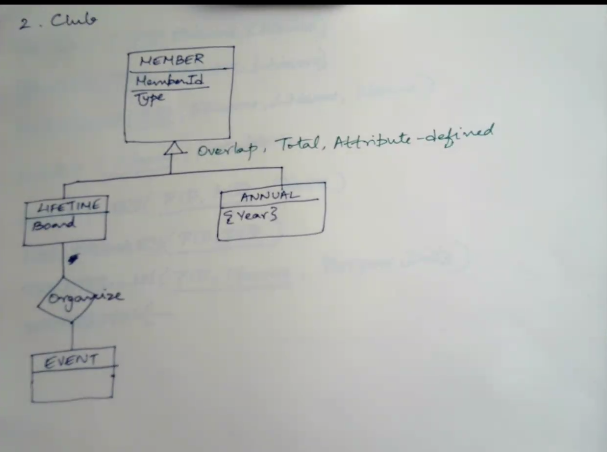 2. Club
MEMBER
MemberId
Type
Overlap, Total, Attribute-defined
LIFETIME
Board
ANNUAL
{Year}
Organize
EVENT